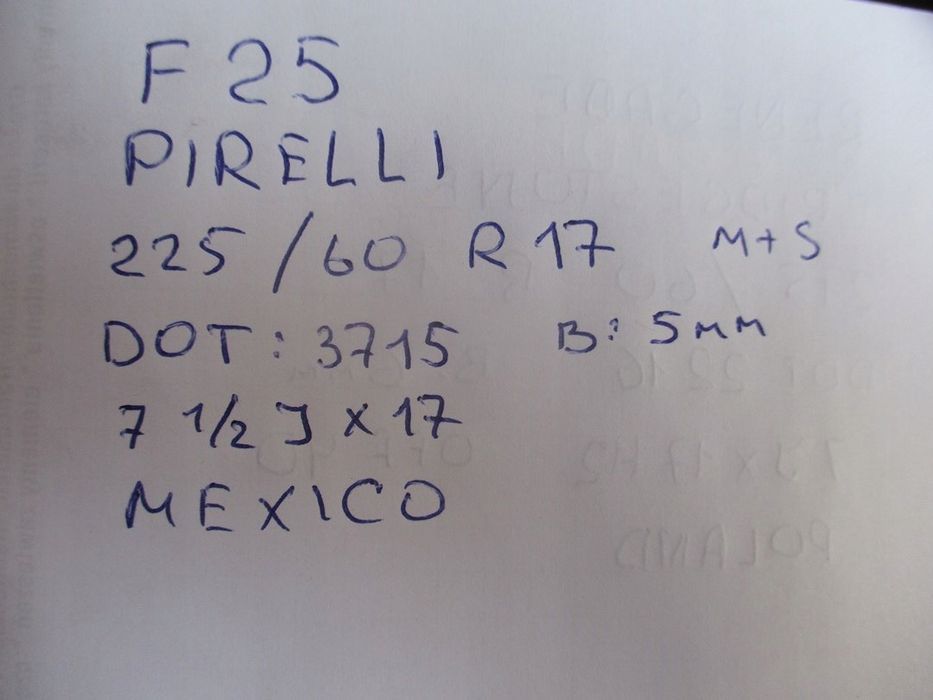 F 25
PIRELLI
225 / 60 R 17 M+S
DOT: 3715 B: 5mm
7 1/2 J x 17
MEXICO